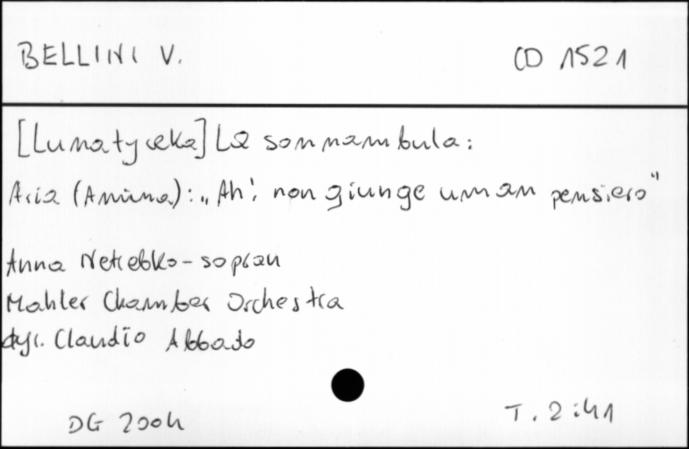 BELLINI V. CD 1521
[Lunatyczka] La sonnambula:
Aria (Amina): „Ah! non giunge uman pensiero"
Anna Netrebko - sopran
Mahler Chamber Orchestra
dyr. Claudio Abbado
DG 2004 T. 2:41